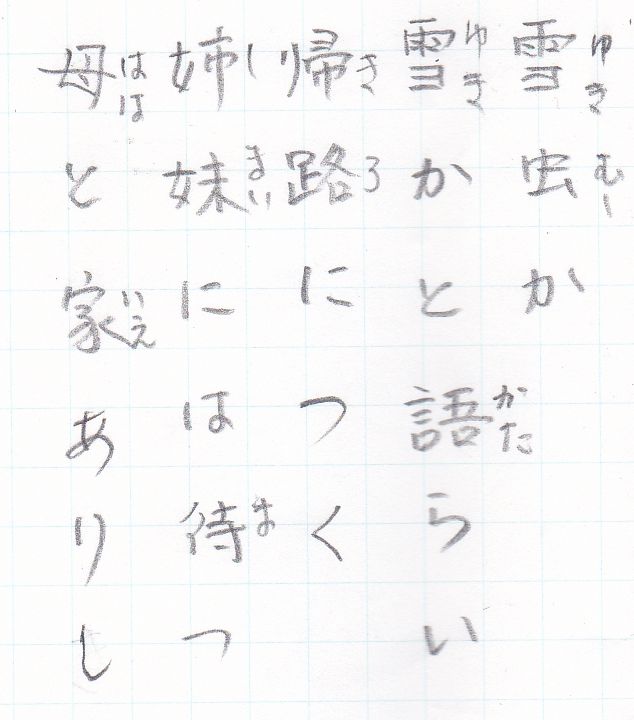 ゆき むし
雪虫か
ゆき かた
雪かと語らい
き ろ
帰路につく
し まい ま
姉妹には待つ
はは いえ
母と家ありし